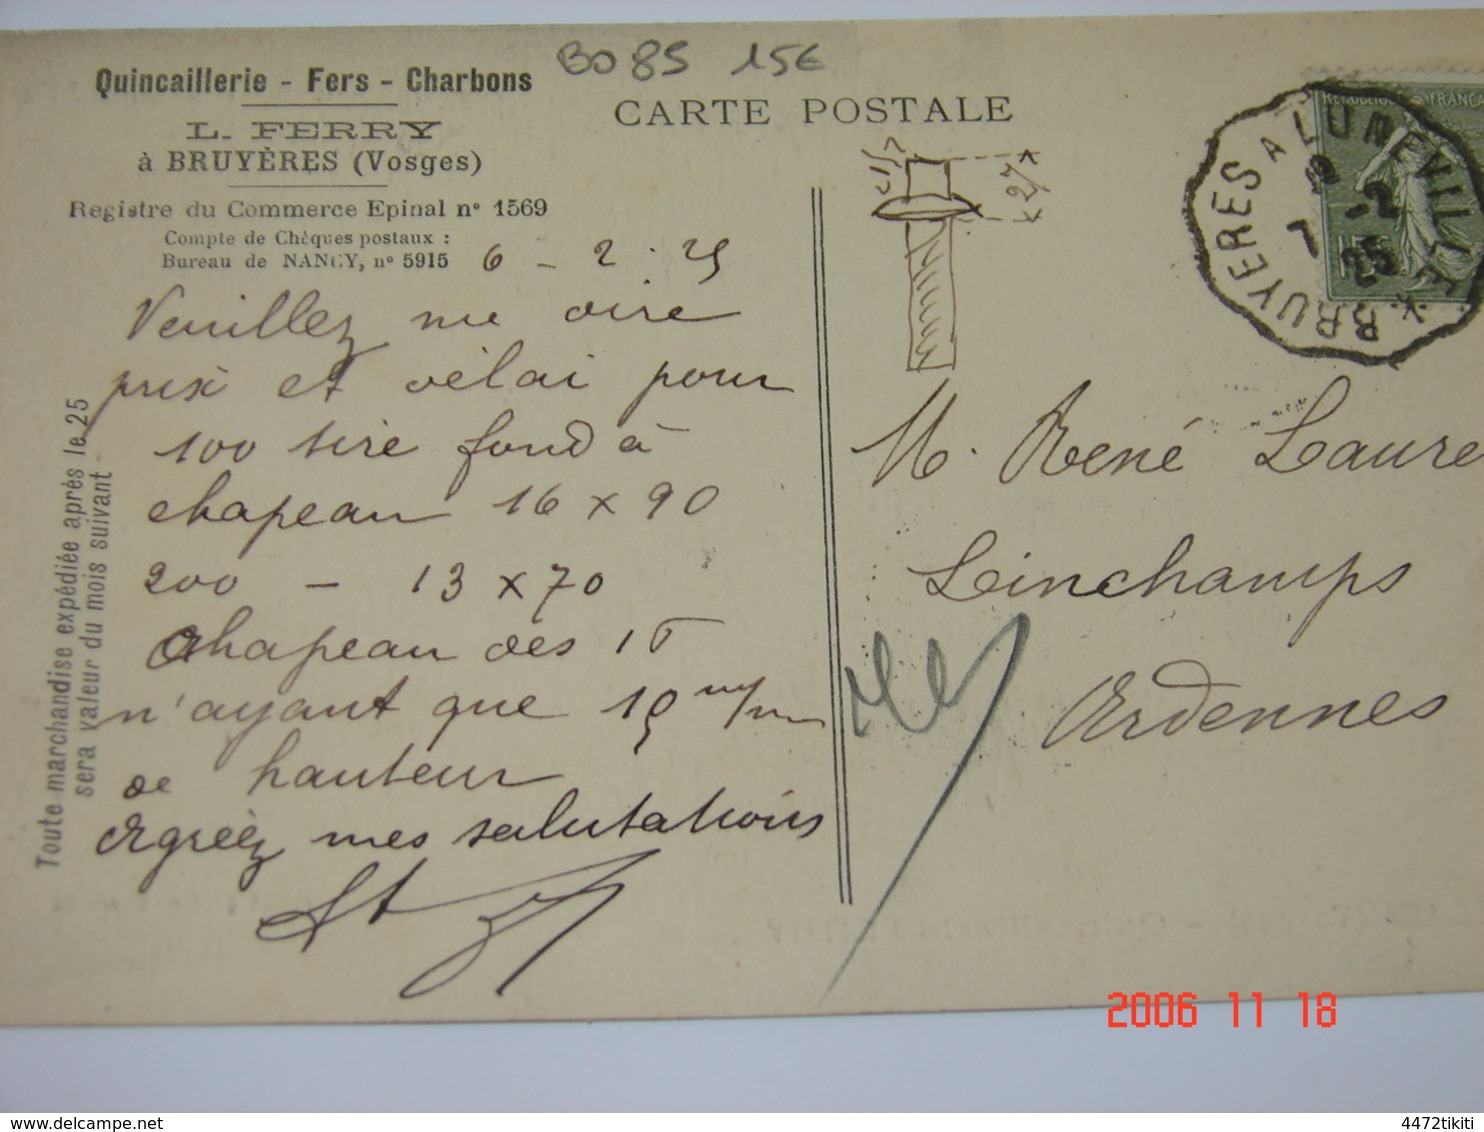 BO 85 15€
Quincaillerie - Fers - Charbons
L. FERRY
à BRUYÈRES (Vosges)
Registre du Commerce Epinal n° 1569
Compte de Chèques postaux :
Bureau de NANCY, n° 5915
6 - 2 . 25
Veuillez me dire
prix et délai pour
100 tire fond à
chapeau 16 x 90
200 - 13 x 70
chapeau des 16
n'ayant que 15 m/m
de hauteur
Agréez mes salutations
Toute marchandise expédiée après le 25
sera valeur du mois suivant
CARTE POSTALE
27
M. René Laure
Linchamps
Ardennes
REPUBLIQUE FRANÇ
15
BRUYERES A LUNEVILLE
7 - 2
25
2006 11 18
delcampe.net
4472tikiti